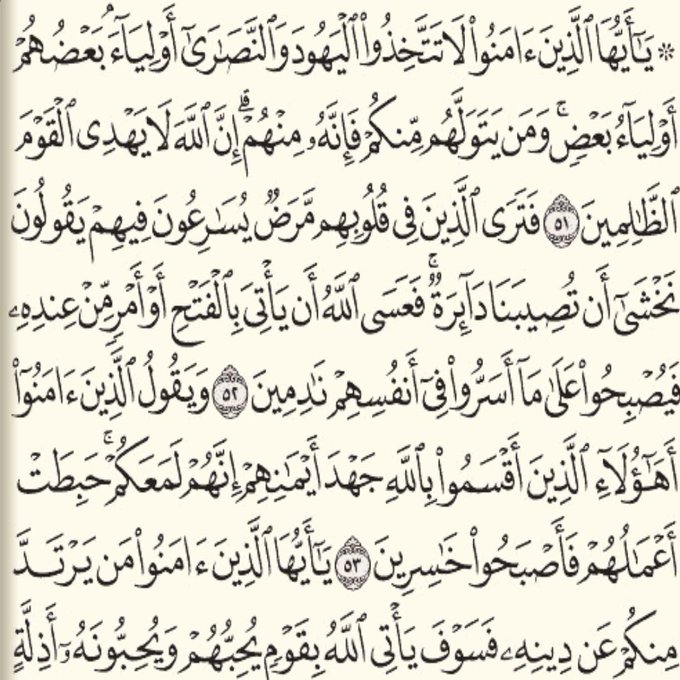 ۞ يَٰٓأَيُّهَا ٱلَّذِينَ ءَامَنُوا۟ لَا تَتَّخِذُوا۟ ٱلْيَهُودَ وَٱلنَّصَٰرَىٰٓ أَوْلِيَآءَۘ بَعْضُهُمْ
أَوْلِيَآءُ بَعْضٍۚ وَمَن يَتَوَلَّهُم مِّنكُمْ فَإِنَّهُۥ مِنْهُمْۗ إِنَّ ٱللَّهَ لَا يَهْدِى ٱلْقَوْمَ
ٱلظَّٰلِمِينَ ٥١ فَتَرَى ٱلَّذِينَ فِى قُلُوبِهِم مَّرَضٌ يُسَٰرِعُونَ فِيهِمْ يَقُولُونَ
نَخْشَىٰٓ أَن تُصِيبَنَا دَآئِرَةٌۚ فَعَسَى ٱللَّهُ أَن يَأْتِىَ بِٱلْفَتْحِ أَوْ أَمْرٍ مِّنْ عِندِهِۦ
فَيُصْبِحُوا۟ عَلَىٰ مَآ أَسَرُّوا۟ فِىٓ أَنفُسِهِمْ نَٰدِمِينَ ٥٢ وَيَقُولُ ٱلَّذِينَ ءَامَنُوٓا۟
أَهَٰٓؤُلَآءِ ٱلَّذِينَ أَقْسَمُوا۟ بِٱللَّهِ جَهْدَ أَيْمَٰنِهِمْ إِنَّهُمْ لَمَعَكُمْۚ حَبِطَتْ
أَعْمَٰلُهُمْ فَأَصْبَحُوا۟ خَٰسِرِينَ ٥٣ يَٰٓأَيُّهَا ٱلَّذِينَ ءَامَنُوا۟ مَن يَرْتَدَّ
مِنكُمْ عَن دِينِهِۦ فَسَوْفَ يَأْتِى ٱللَّهُ بِقَوْمٍ يُحِبُّهُمْ وَيُحِبُّونَهُۥٓ أَذِلَّةٍ